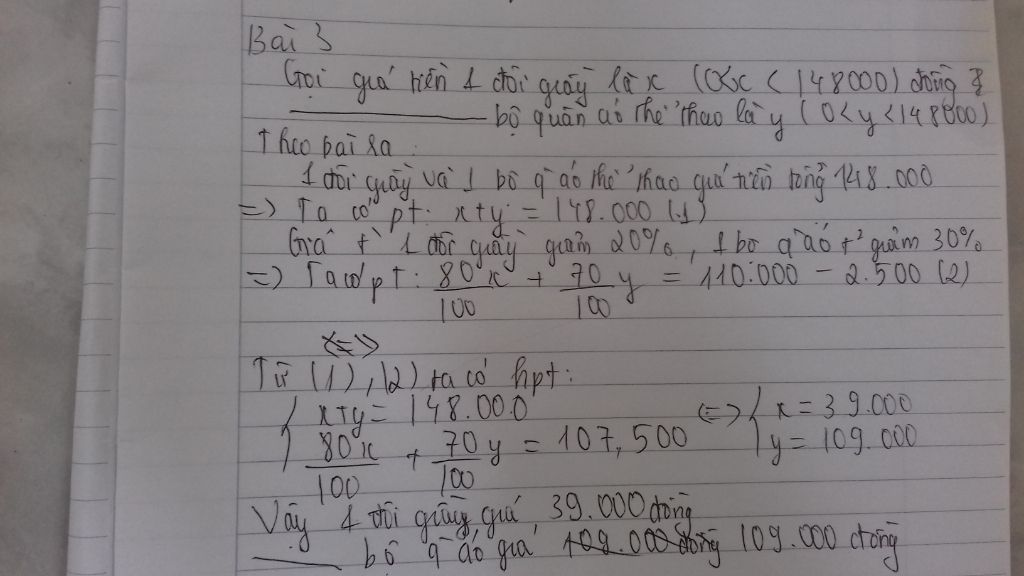 Bài 3
Gọi giá tiền 1 đôi giầy là x (0<x < 148000) đồng
bộ quần áo thể thao là y (0<y<148000)
Theo bài ra :
1 đôi giầy và 1 bộ q`áo thể thao giá tiền tổng 148.000
=> Ta có pt: x+y = 148.000 (1)
Giá t` 1 đôi giầy giảm 20%, 1 bộ q`áo t² giảm 30%
=> Ta có pt: 80x/100 + 70/100 y = 110.000 - 2.500 (2)
Từ (1), (2) ta có hpt:
{ x+y = 148.000 <=> { x = 39.000
{ 80x/100 + 70/100 y = 107,500 { y = 109.000
Vậy 1 đôi giầy giá 39.000 đồng
bộ q`áo giá 109.000 đồng 109.000 đồng